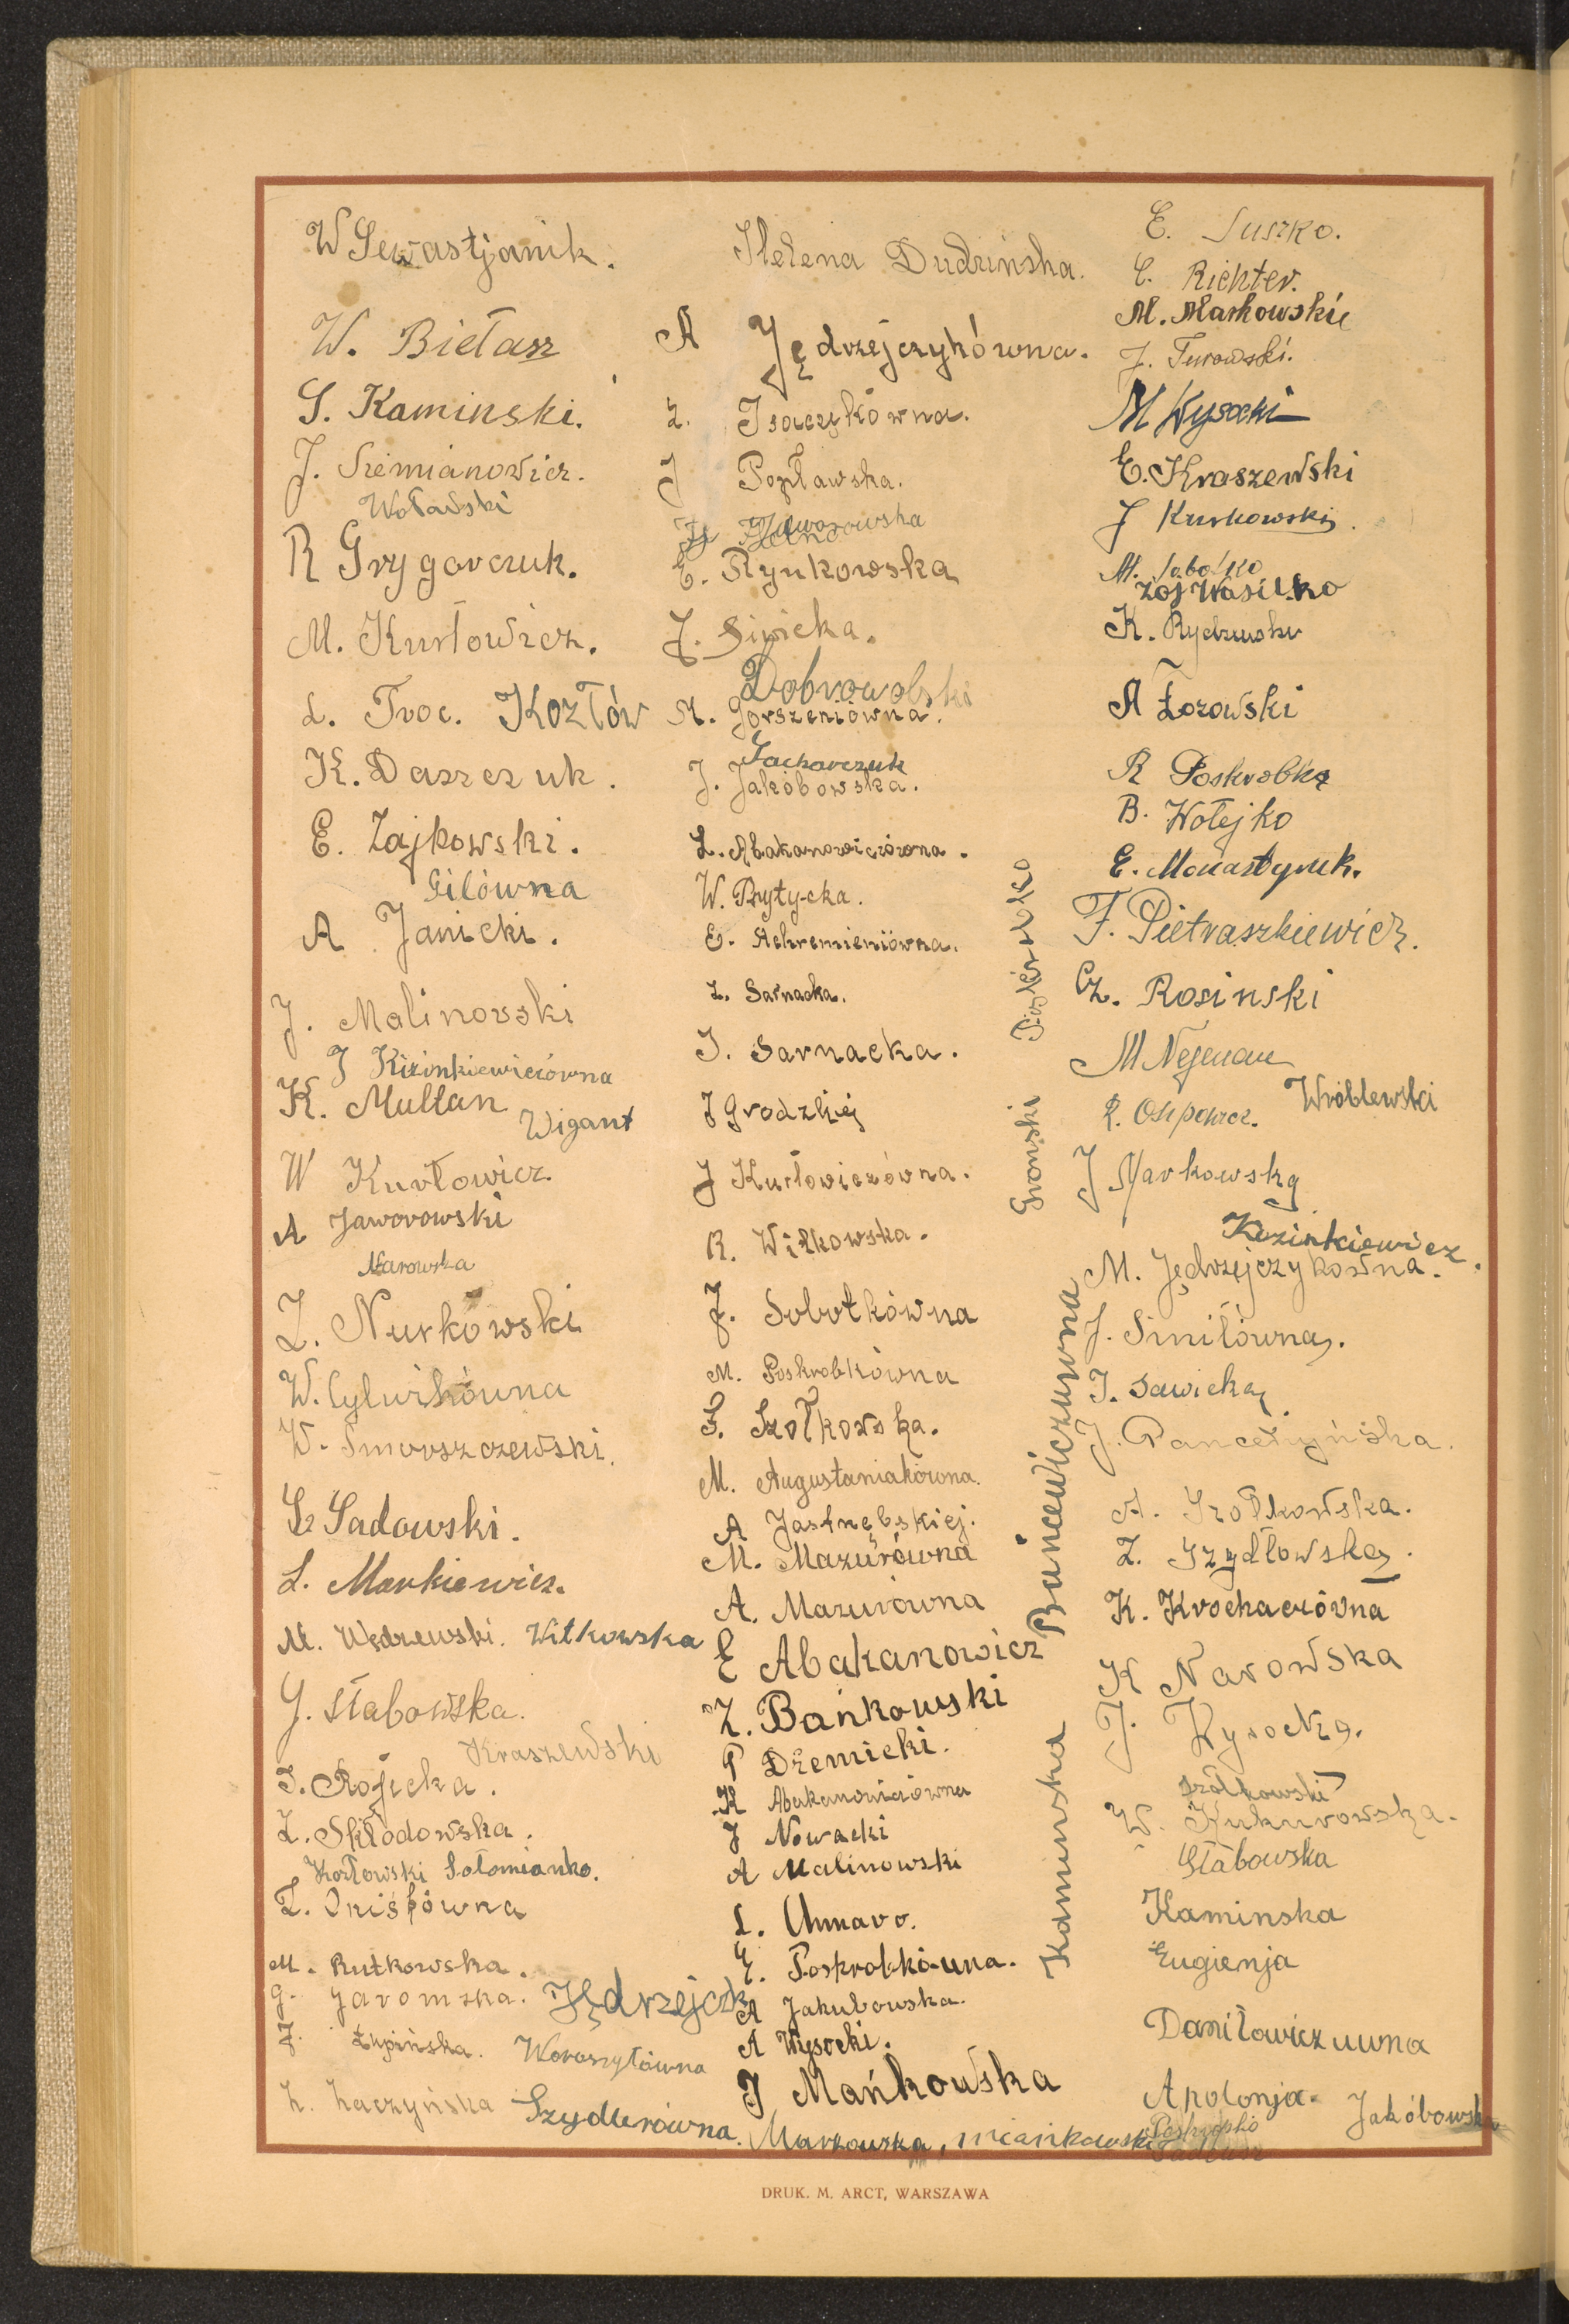 W Sewastjanik.
W. Biełasz
S. Kaminski.
J. Siemianowicz.
Wołański
R Grygorczuk.
M. Kurłowicz.
L. Troc. Kozłów
K. Daszczuk.
E. Zajkowski.
Gilówna
A Janicki.
J. Malinowski
J Kizinkiewiczówna
K. Multan
Wigant
W Kurłowicz
A Jaworowski
Narowska
Z. Nurkowski
W. Cylwikówna
W. Smorszczewski.
Sadowski.
L. Markiewicz.
M. Wądzewski. Witkowska
J. Słabowska.
Kraszewski
J. Rojecka.
Z. Skłodowska.
Kozłowski Sołomianko.
Z. Oniśkówna
M. Rutkowska.
G. Jaromska. Jędrzejczk
J. Łupińska. Woroszyłówna
Z. Zaczyńska Szydlerówna.
Helena Dudzińska.
A Jędrzejczykówna.
Z. Isaczykówna.
J Popławska.
Jaworowska
E. Rynkowska
J. Siwicka.
Dobrowolski
M. Gorszeniówna.
Zacharczuk
J. Jakóbowska.
L. Abakanowiczówna.
W. Prytycka.
E. Achremieniówna.
Z. Sarnacka.
J. Sarnacka.
J Grodzkiej
J Kurłowiczówna.
R. Wiłkowska.
J. Sobotkówna
M. Poskrobkówna
S. Szołkowska.
M. Augustaniakówna.
A Jastrzębskiej.
M. Mazurówna
A. Mazurówna
E Abakanowicz
Z. Bańkowski
P Dziemicki.
K Abakanowiczówna
J Nowacki
A Malinowski
L.
E. Poskrobkówna.
A Jakubowska.
A Wysocki.
J Mańkowska
Markowska, mieńkowski
Gronski
Bańcewiczuwna
Kaminska
E. Suszko.
E. Richter.
M. Markowskie
J. Turowski.
M Wysocki
E. Kraszewski
J Kurkowski.
M. Sobotko
Zoj Wasilko
K.
A Łozowski
R Poskrobka
B. Wołejko
E. Monastyruk.
F. Pietraszkiewicz.
Cz. Rosinski
M
Wróblewski
J Markowska
Kizinkiewicz.
M. Jędrzejczykówna.
J. Smitówna.
J. Sawicka
J. Pancerzyńska.
A. Szołkowska.
Z. Szydłowska.
K. Krochaczówna
K Narowska
J. Wysocka.
Szołkowski
W. Kukurowska.
Słabowska
Kaminska
Eugienja
Daniłowiczuwna
Apolonja Jakóbowska
Tadeusz
DRUK. M. ARCT, WARSZAWA